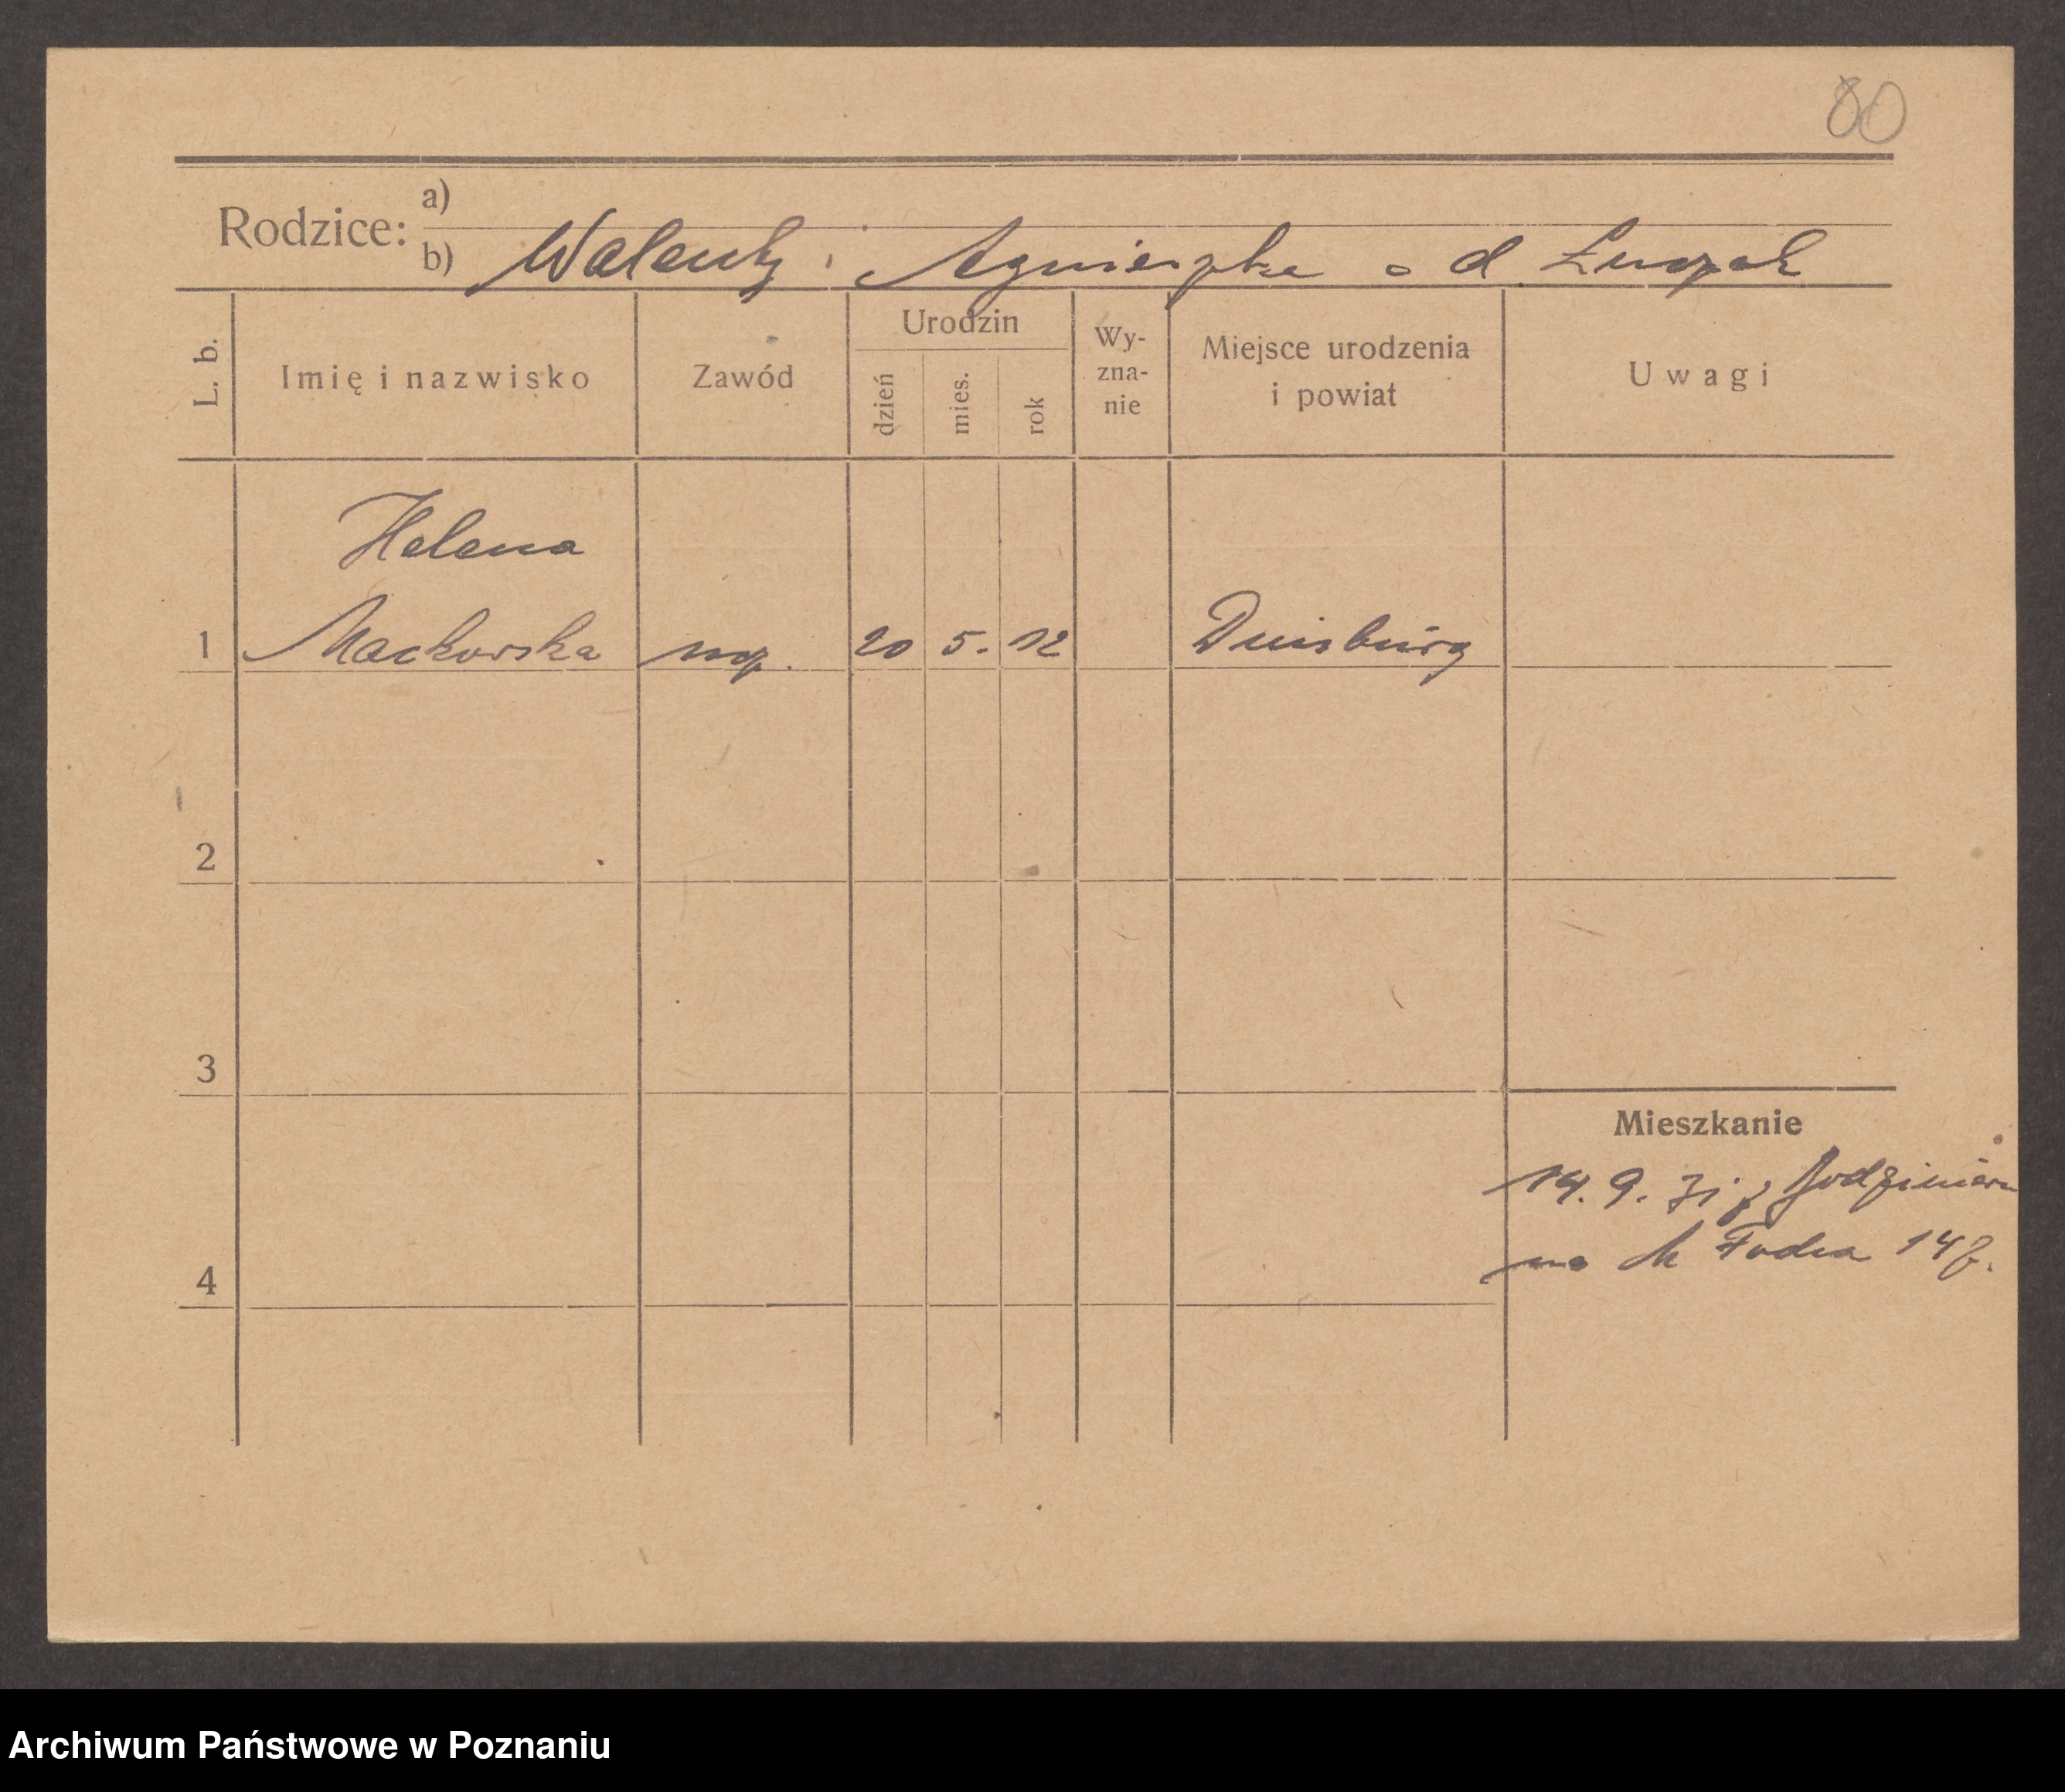 80
Rodzice: a)
b) Walenty i Agnieszka z d. Łuczak
L. b.
Imię i nazwisko
Zawód
Urodzin
dzień
mies.
rok
Wy-
zna-
nie
Miejsce urodzenia
i powiat
Uwagi
Helena
1 Mackowska 20 5. 12 Duisburg
2
3
Mieszkanie
14. 9. 31 z
na M Focha 147.
4
Archiwum Państwowe w Poznaniu